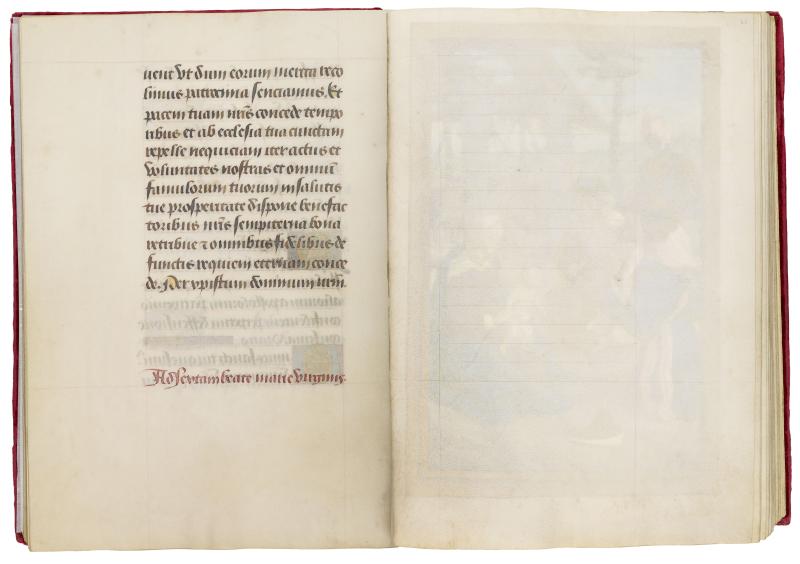 uent vt dum eorum merita reco
limus patrocinia senciamus. Et
pacem tuam nr̄is concede tempo
ribus et ab ecclesia tua cunctam
repelle nequiciam iter actus et
voluntates nostras et omniū
famulorum tuorum in salutis
tue prosperitate dispone benefac
toribus nr̄is sempiterna bona
retribue ⁊ omnibus fidelibus de
functis requiem eternam conce
de. Per xpistum dominum nr̄m.
Ad sextam beate marie virginis.